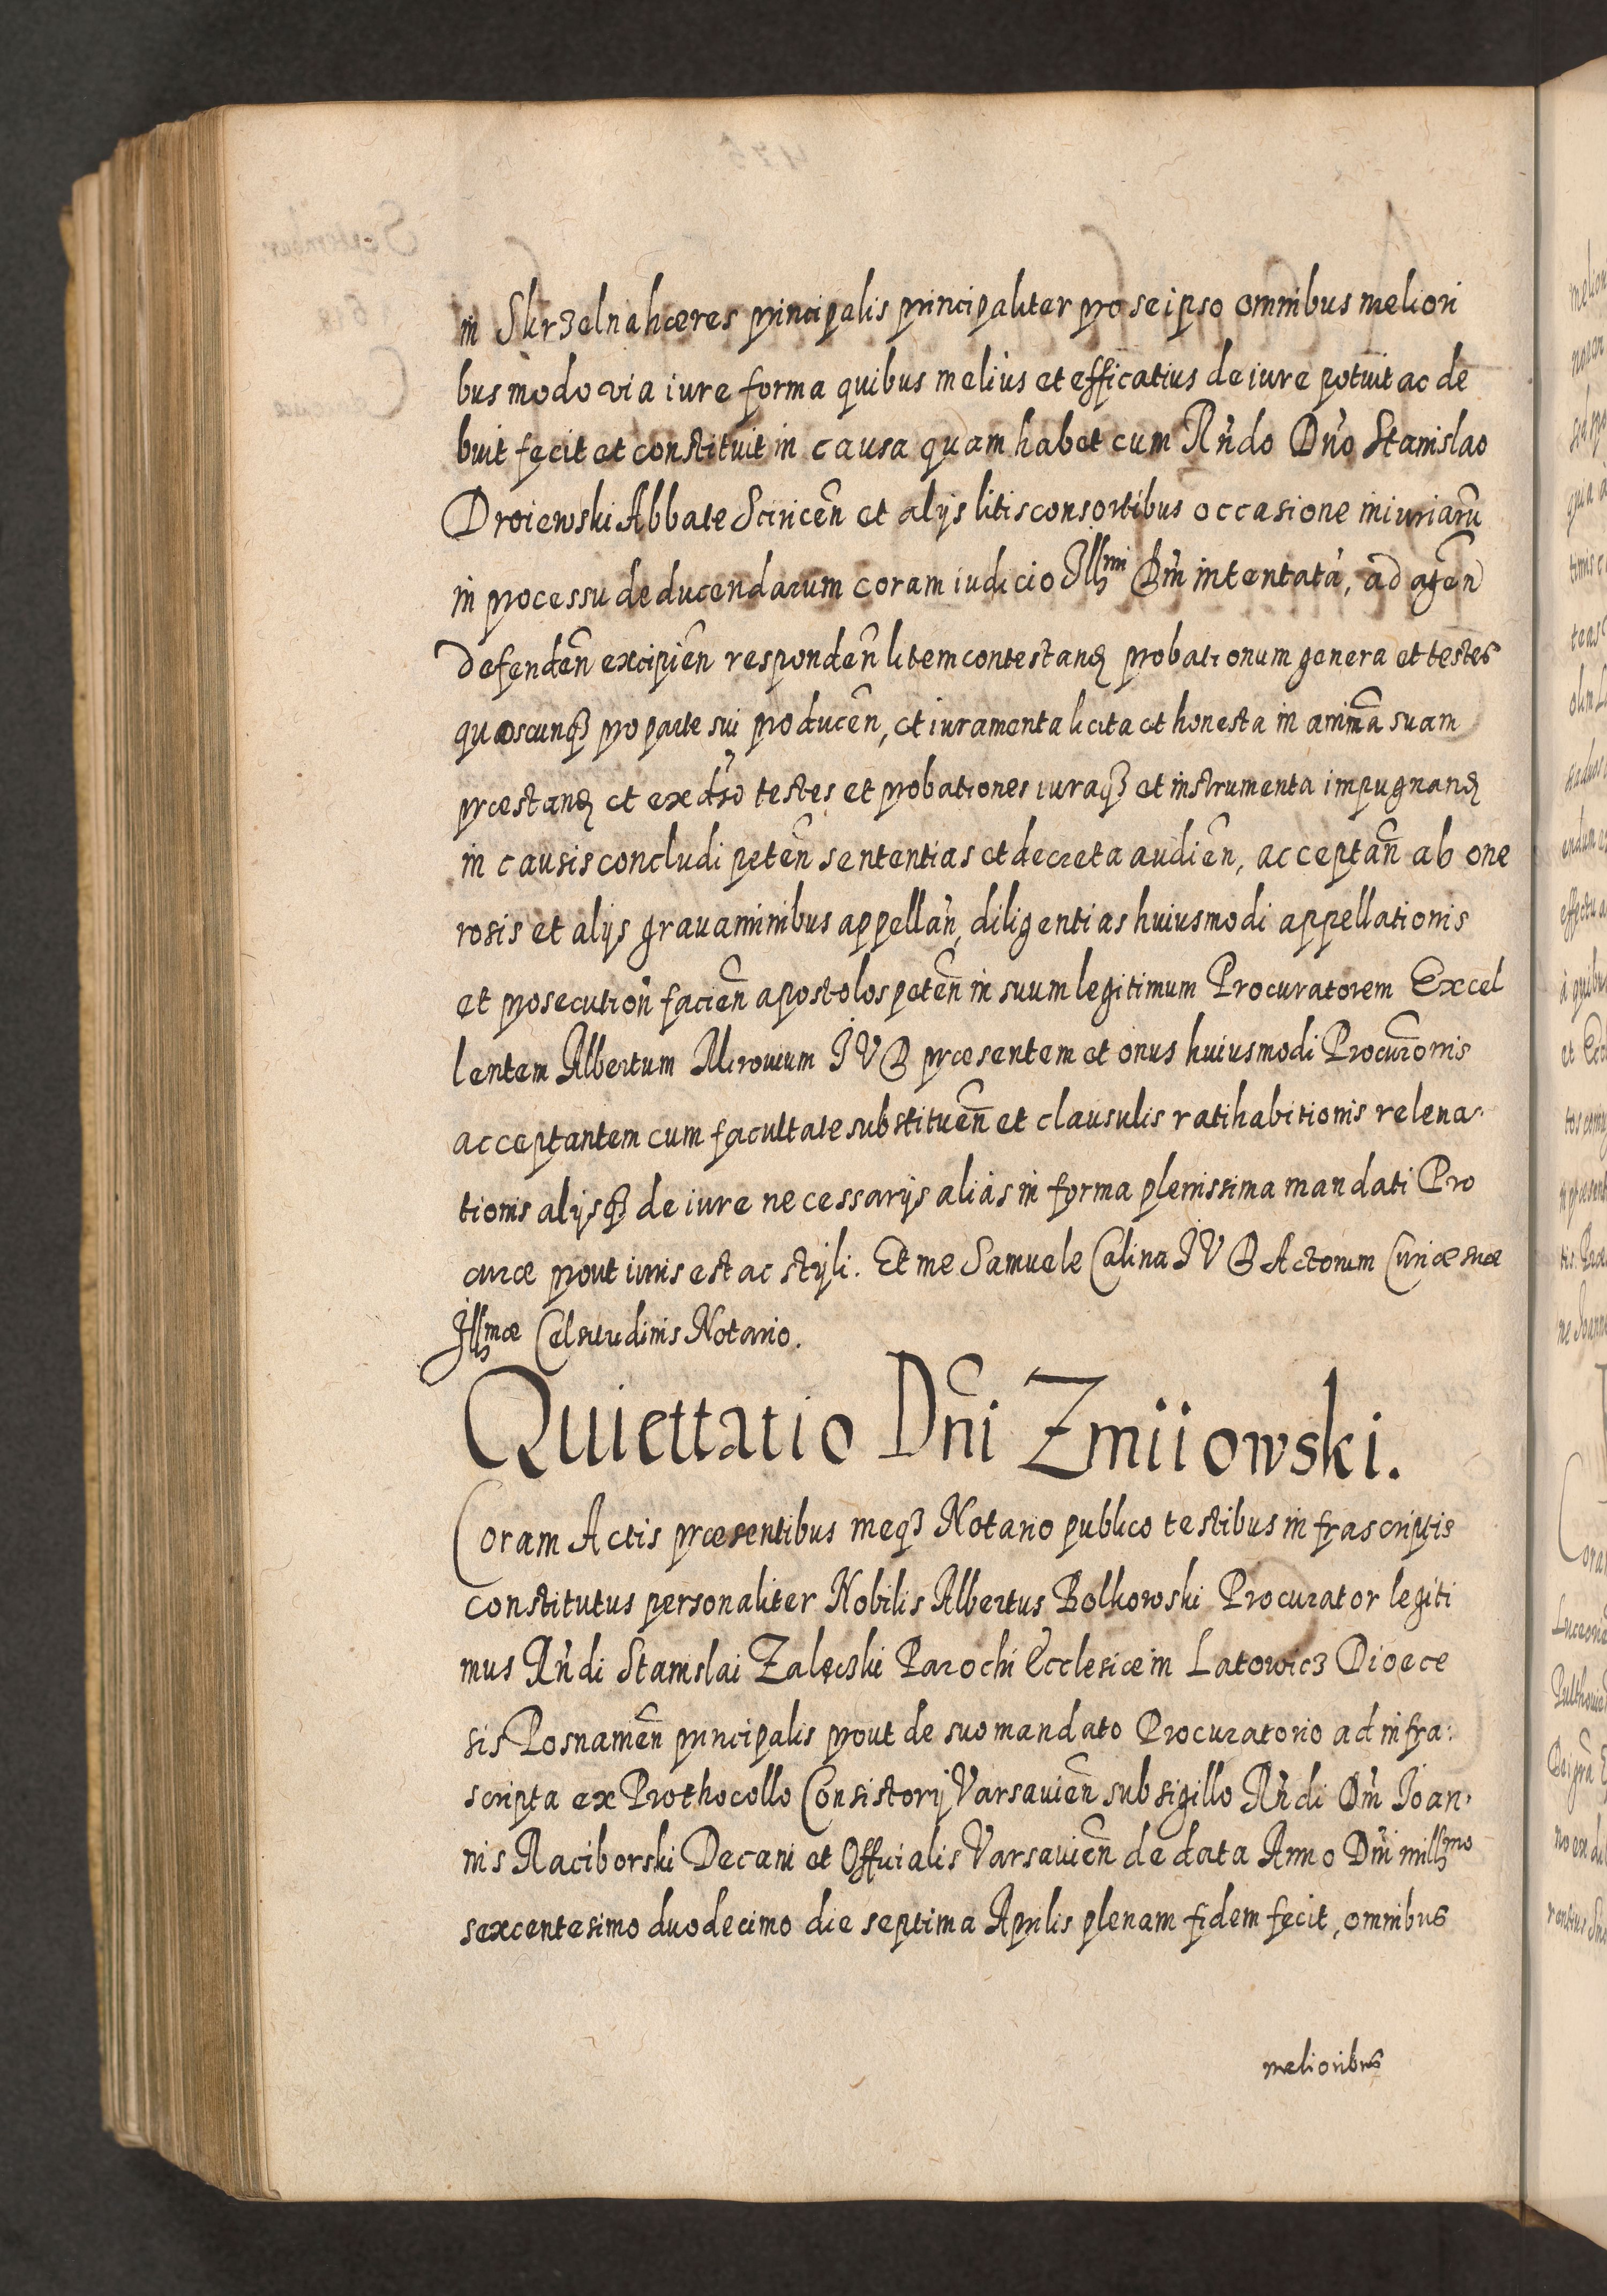 in Skrzelna hæres principalis principaliter pro se ipso omnibus meliori
bus modo via iure forma quibus melius et efficatius de iure potuit ac de
buit fecit et constituit in causa quam habet cum Rñdo Dño Stanislao
Droiewski Abbate Sciricen̄ et alijs litisconsortibus occasione iniuriarū
in processu deducendarum coram iudicio Illmi Dn̄i intentata, ad agen̄
defenden̄ excipien̄ responden̄ litem contestanđ probationum genera et testes
quoscunqȝ pro parte sui producen̄, et iuramenta licita et honesta in anim̄a suam
præstanđ et exađso testes et probationes iuraqȝ et instrumenta impugnanđ
in causis concludi peten̄ sententias et decreta audien̄, acceptan̄ ab one
rosis et alijs grauaminibus appellan̄, diligentias huiusmodi appellationis
et prosecution̄ facien̄ apostolos peten̄ in suum legitimum Procuratorem Excel
lentem Albertum Mirovium I V D præsentem et onus huiusmodi Procurōnis
acceptantem cum facultate substituen̄ et clausulis ratihabitionis releua
tionis alijsqȝ de iure necessarijs alias in forma plenissima mandati Pro
curæ prout iuris est ac styli. Et me Samuele Calina I V D Actorum Curiæ suæ
Illmæ Celsitudinis Notario.
Quiettatio Dn̄i Zmiiowski.
Coram Actis præsentibus meqȝ Notario publico testibus infrascriptis
constitutus personaliter Nobilis Albertus Bolkowski Procurator legiti
mus Rñdi Stanislai Zalęcski Parochi Ecclesiæ in Latowicz Diœce
sis Posnanien̄ principalis prout de suo mandato Procuratorio ad infra:
scripta ex Prothocollo Consistorij Varsauien̄ sub sigillo Rñdi Dn̄i Ioan,
nis Raciborski Decani et Officialis Varsauien̄ de data Anno Dn̄i millmo
sexcentesimo duodecimo die septima Aprilis plenam fidem fecit, omnibus
melioribus